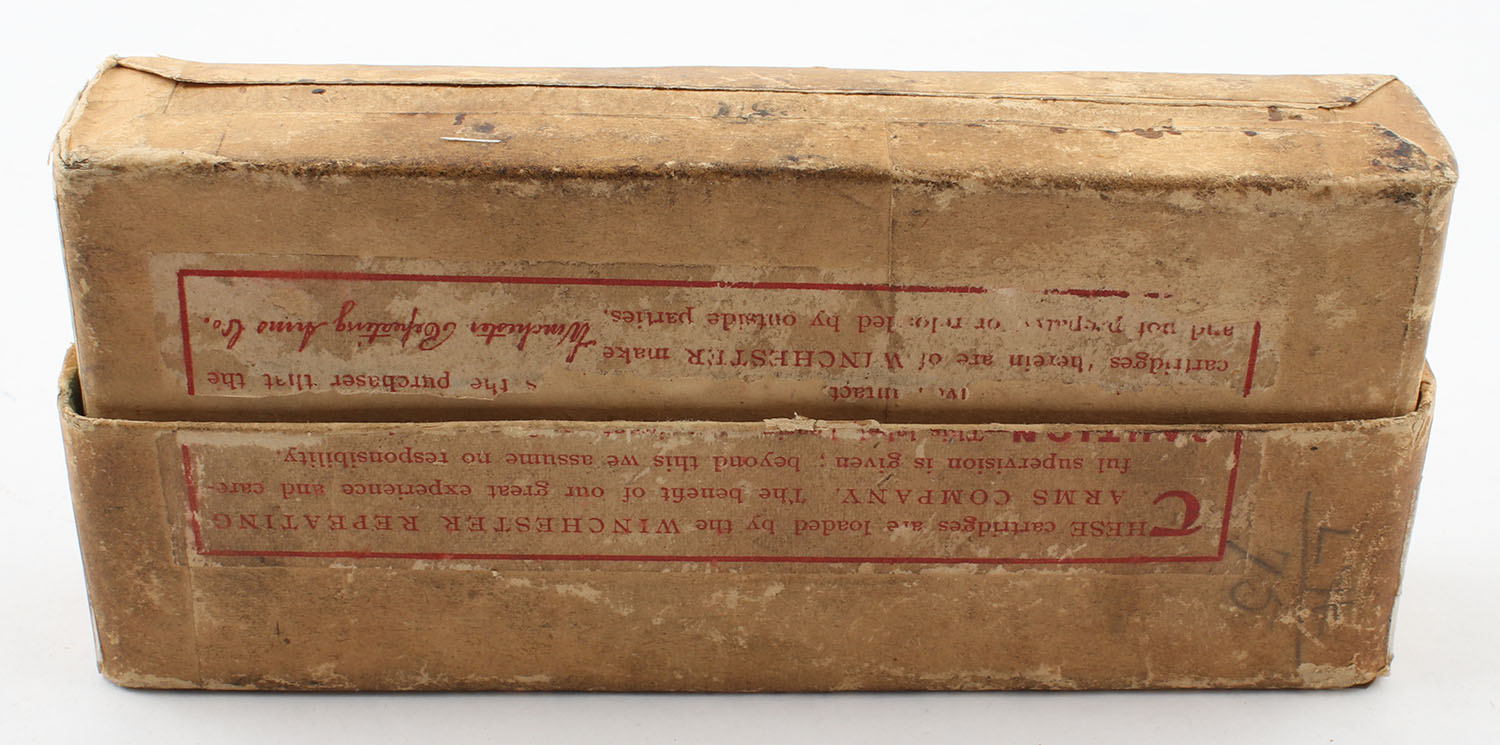 THESE cartridges are loaded by the WINCHESTER REPEATING
ARMS COMPANY. The benefit of our great experience and care-
ful supervision is given; beyond this we assume no responsibility.
CAUTION. This label
intact s the purchaser that the
cartridges herein are of WINCHESTER make
and not or reloaded by outside parties. Winchester Repeating Arms Co.
75